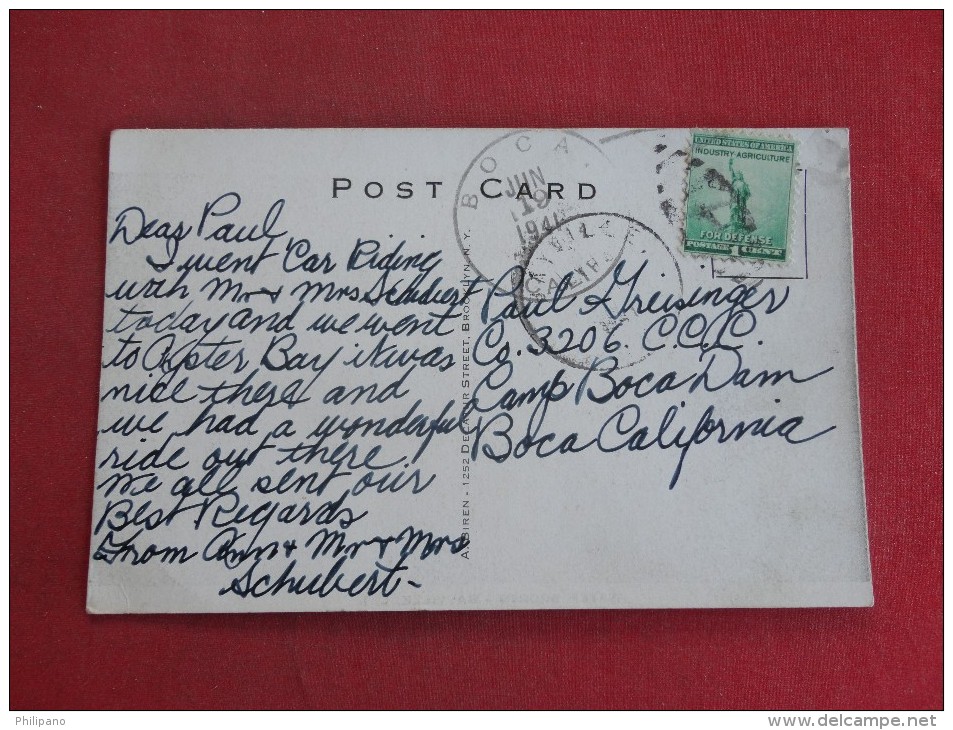 POST CARD
BOCA
JUN
19
194
UNITED STATES OF AMERICA
INDUSTRY-AGRICULTURE
FOR DEFENSE
POSTAGE 1 CENT
Dear Paul
I went Car Riding
with Mr & Mrs Schubert
today and we went
to Oyster Bay it was
nice there and
we had a wonderful
ride out there.
We all sent our
Best Regards
From Ann & Mr & Mrs
Schubert-
A. BIREN - 1252 DECATUR STREET, BROOKLYN, N. Y.
Paul Greisinger
Co. 3206. C.C.C.
Camp Boca Dam
Boca California
Philipano
www.delcampe.net